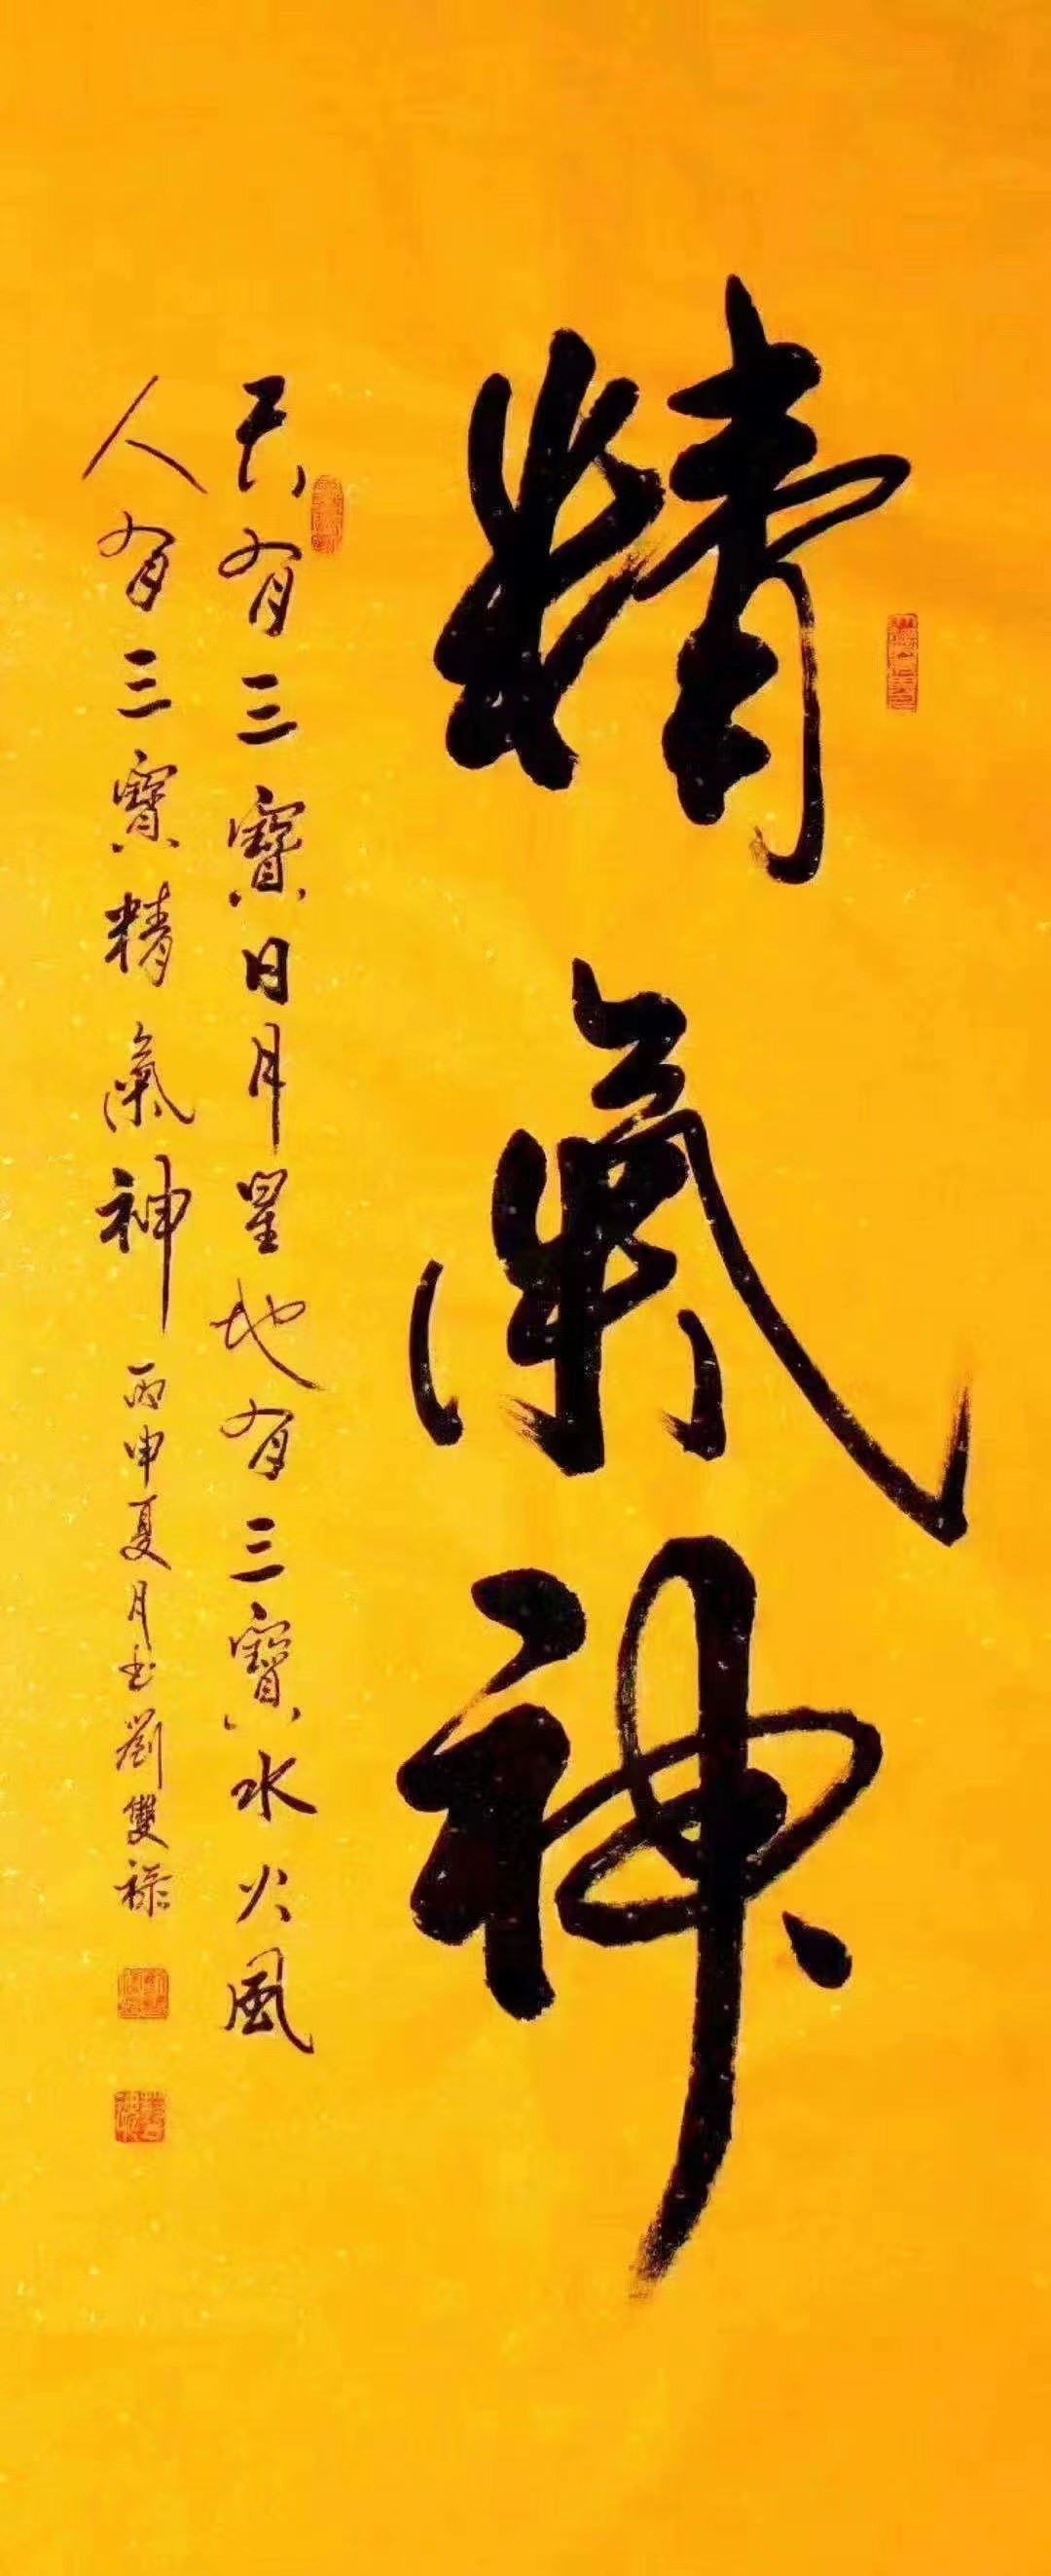 精氣神
天有三寶日月星地有三寶水火風
人有三寶精氣神 丙申夏月書劉雙祿